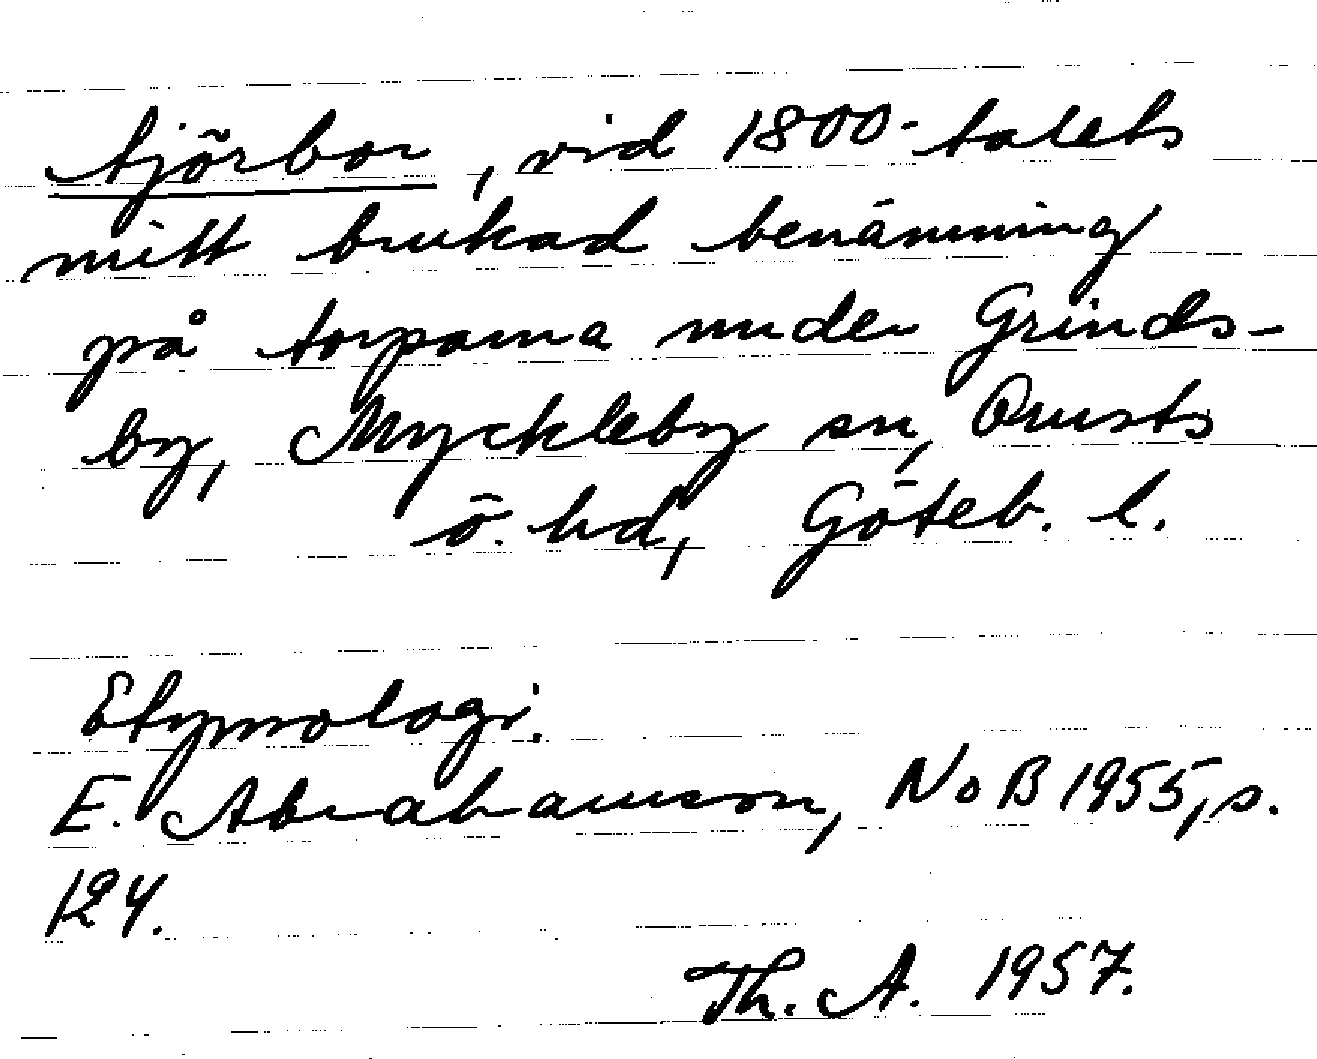 tjörbor, vid 1800-talets
mitt brukad benämning
på torparna under Grinds-
by, Myckleby sn, Orusts
ö. hd, Göteb. l.
Etymologi.
E. Abrahamson, NoB 1955, s.
124.
Th. A. 1957.